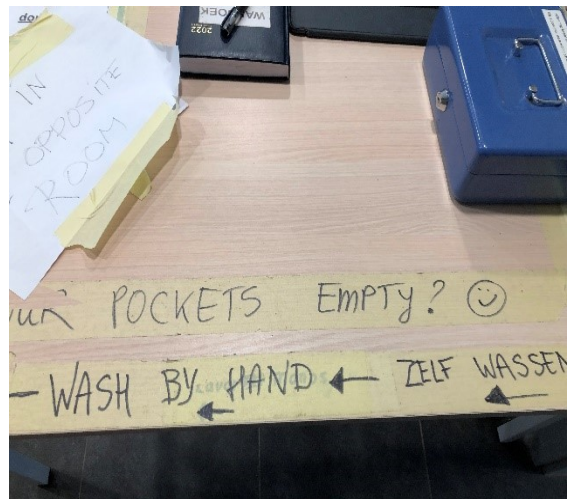 IN
OPPOSITE
ROOM
WASBOEK
2022
POCKETS EMPTY?
WASH BY HAND ← ZELF WASSEN
←
←